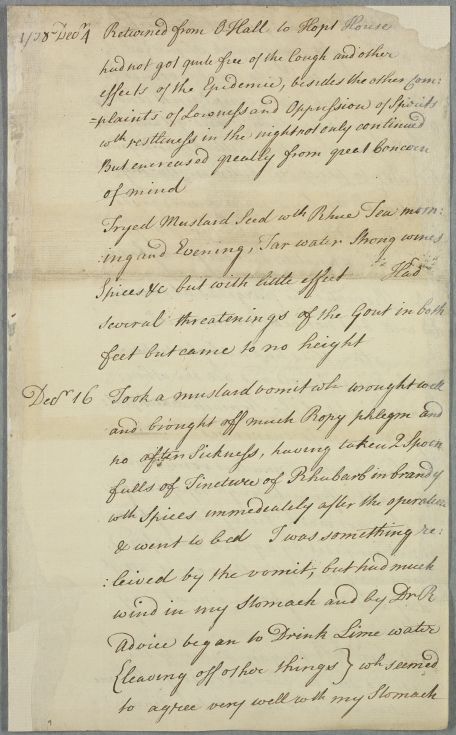 1758 Decr 4 Returned from O Hall to Hopt House
had not got quite free of the Cough and other
effects of the Epidemic, besides the other Com:
=plaints of Lowness and Oppression of Spirits
wth restlness in the night not only continued
But encreased greatly from great Concern
of mind
Tryed Mustard Seed wth Rhue Tea morn:
:ing and Evening, Tar water Strong wines
Spices &c but with little effect Had
several threatenings of the Gout in both
feet but came to no height
Decr 16 Took a mustard vomit wh wrought well
and brought off much Ropy phlegm and
no after Sickness, having taken 2 Spoon
fulls of Tincture of Rhubarb in brandy
wth Spices immedeately after the operation
& went to bed I was something re:
:leived by the vomit, but had much
wind in my Stomach and by Dr R
Advice began to Drink Lime water
{leaving off other things} wh seemed
to agree very well with my Stomach